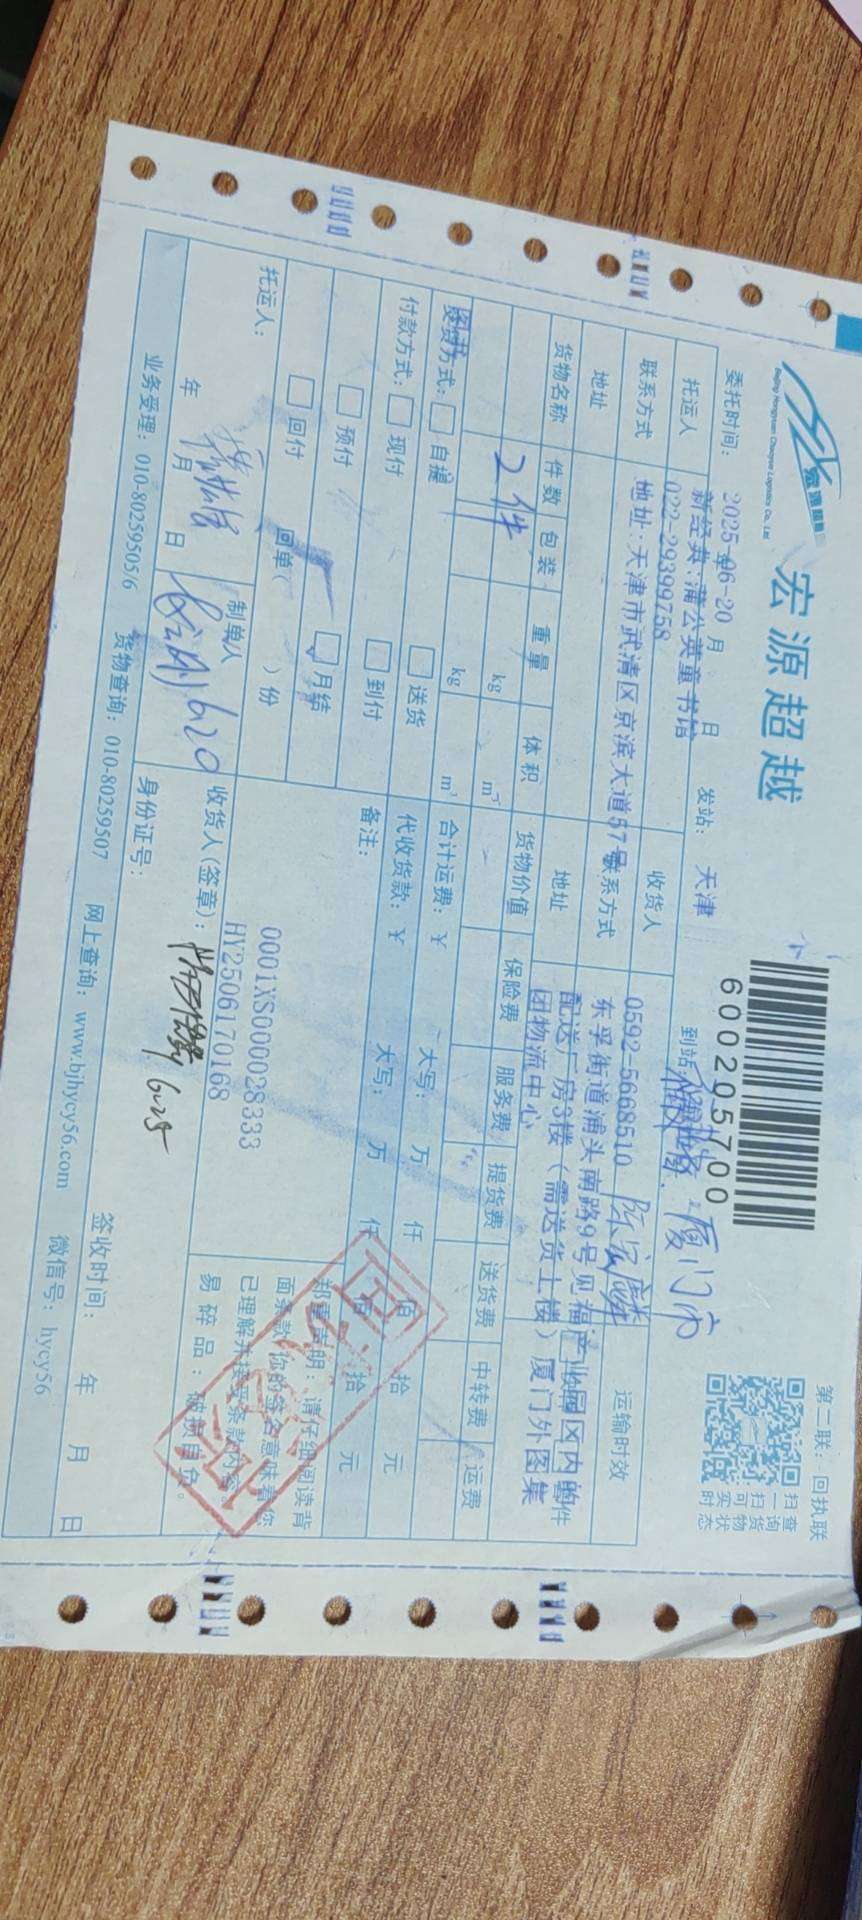 宏源超越
Beijing Hongyuan Chaoyue Logistics Co., Ltd
600205700
第二联：回执联
扫一扫查询货物实时状态
委托时间： 2025-06-20 月 日 发站： 天津 到站： 厦门市
托运人 新经典:蒲公英童书馆 收货人 运输时效
联系方式 022-29399758 联系方式 0592-5668510
地址 地址：天津市武清区京滨大道57号 地址 东孚街道浦头南路9号见福产业园区内的
配送厂房3楼（需送货上楼）厦门外图集
团物流中心
货物名称 件数 包装 重量 体积 货物价值 保险费 服务费 提货费 送货费 中转费 运费
2件 kg m³
kg m³ 合计运费：￥ 大写： 万 仟 佰 拾 元
方式： 自提 送货 代收货款：￥ 大写： 万 仟 佰 拾 元
付款方式： 现付 到付 备注：
预付 月结
回付 回单（ ）份
0001XS000028333
HY2506170168
郑重声明：请仔细阅读背
面条款，你的签名意味着您
已理解并接受条款内容。
易碎品：破损自负。
托运人： 制单人 6.20 收货人(签章)： 6.25
年 月 日 身份证号： 签收时间： 年 月 日
业务受理：010-80259505/6 货物查询：010-80259507 网上查询：www.bjhycy56.com 微信号：hycy56